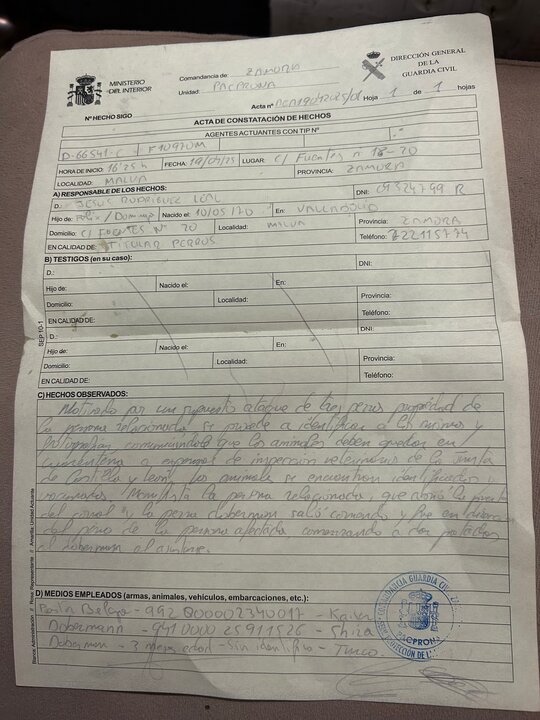 MINISTERIO
DEL INTERIOR
Comandancia de: ZAMORA
Unidad: PACPRONA
DIRECCIÓN GENERAL
DE LA
GUARDIA CIVIL
Acta nº Hoja 1 de 1 hojas
Nº HECHO SIGO
ACTA DE CONSTATACIÓN DE HECHOS
AGENTES ACTUANTES CON TIP Nº
D-66541-C F10970M
HORA DE INICIO: 16'25h FECHA: 19/04/25 LUGAR: C/ Fuentes nº 18-20
LOCALIDAD: MALVA PROVINCIA: ZAMORA
A) RESPONSABLE DE LOS HECHOS:
D.: JESUS RODRIGUEZ LEAL DNI: 09324799 R
Hijo de: Felix / Domingo Nacido el: 10/05/70 En: VALLADOLID
Domicilio: C/ FUENTES Nº 20 Localidad: MALVA Provincia: ZAMORA
EN CALIDAD DE: TITULAR PERROS Teléfono: 722115774
B) TESTIGOS (en su caso):
D.: DNI:
Hijo de: Nacido el: En:
Domicilio: Localidad: Provincia:
EN CALIDAD DE: Teléfono:
D.: DNI:
Hijo de: Nacido el: En:
Domicilio: Localidad: Provincia:
EN CALIDAD DE: Teléfono:
SEP 10-1
C) HECHOS OBSERVADOS:
Motivado por un supuesto ataque de tres perros propiedad de
la persona relacionada se procede a identificar a los mismos y
fotografiar comunicandole que los animales deben quedar en
cuarentena a expensas de inspeccion veterinaria de la Junta
de Castilla y Leon, los animales se encuentran identificados y
vacunados. Manifiesta la persona relacionada, que abrio la puerta
del corral y la perra doberman salio corriendo y fue en
del perro de la persona afectada comenzando a dar patadas
al doberman al
D) MEDIOS EMPLEADOS (armas, animales, vehículos, embarcaciones, etc.):
Pastor Belga - 992 Q00002340017 - Kaiva
Dobermann - 941 0000 25911526 - Shira
Doberman - 3 meses edad - Sin identificar - Turco
Blanca: Administración // Rosa: Representante // Amarilla: Unidad Actuante
COMANDANCIA GUARDIA CIVIL
PACPRONA